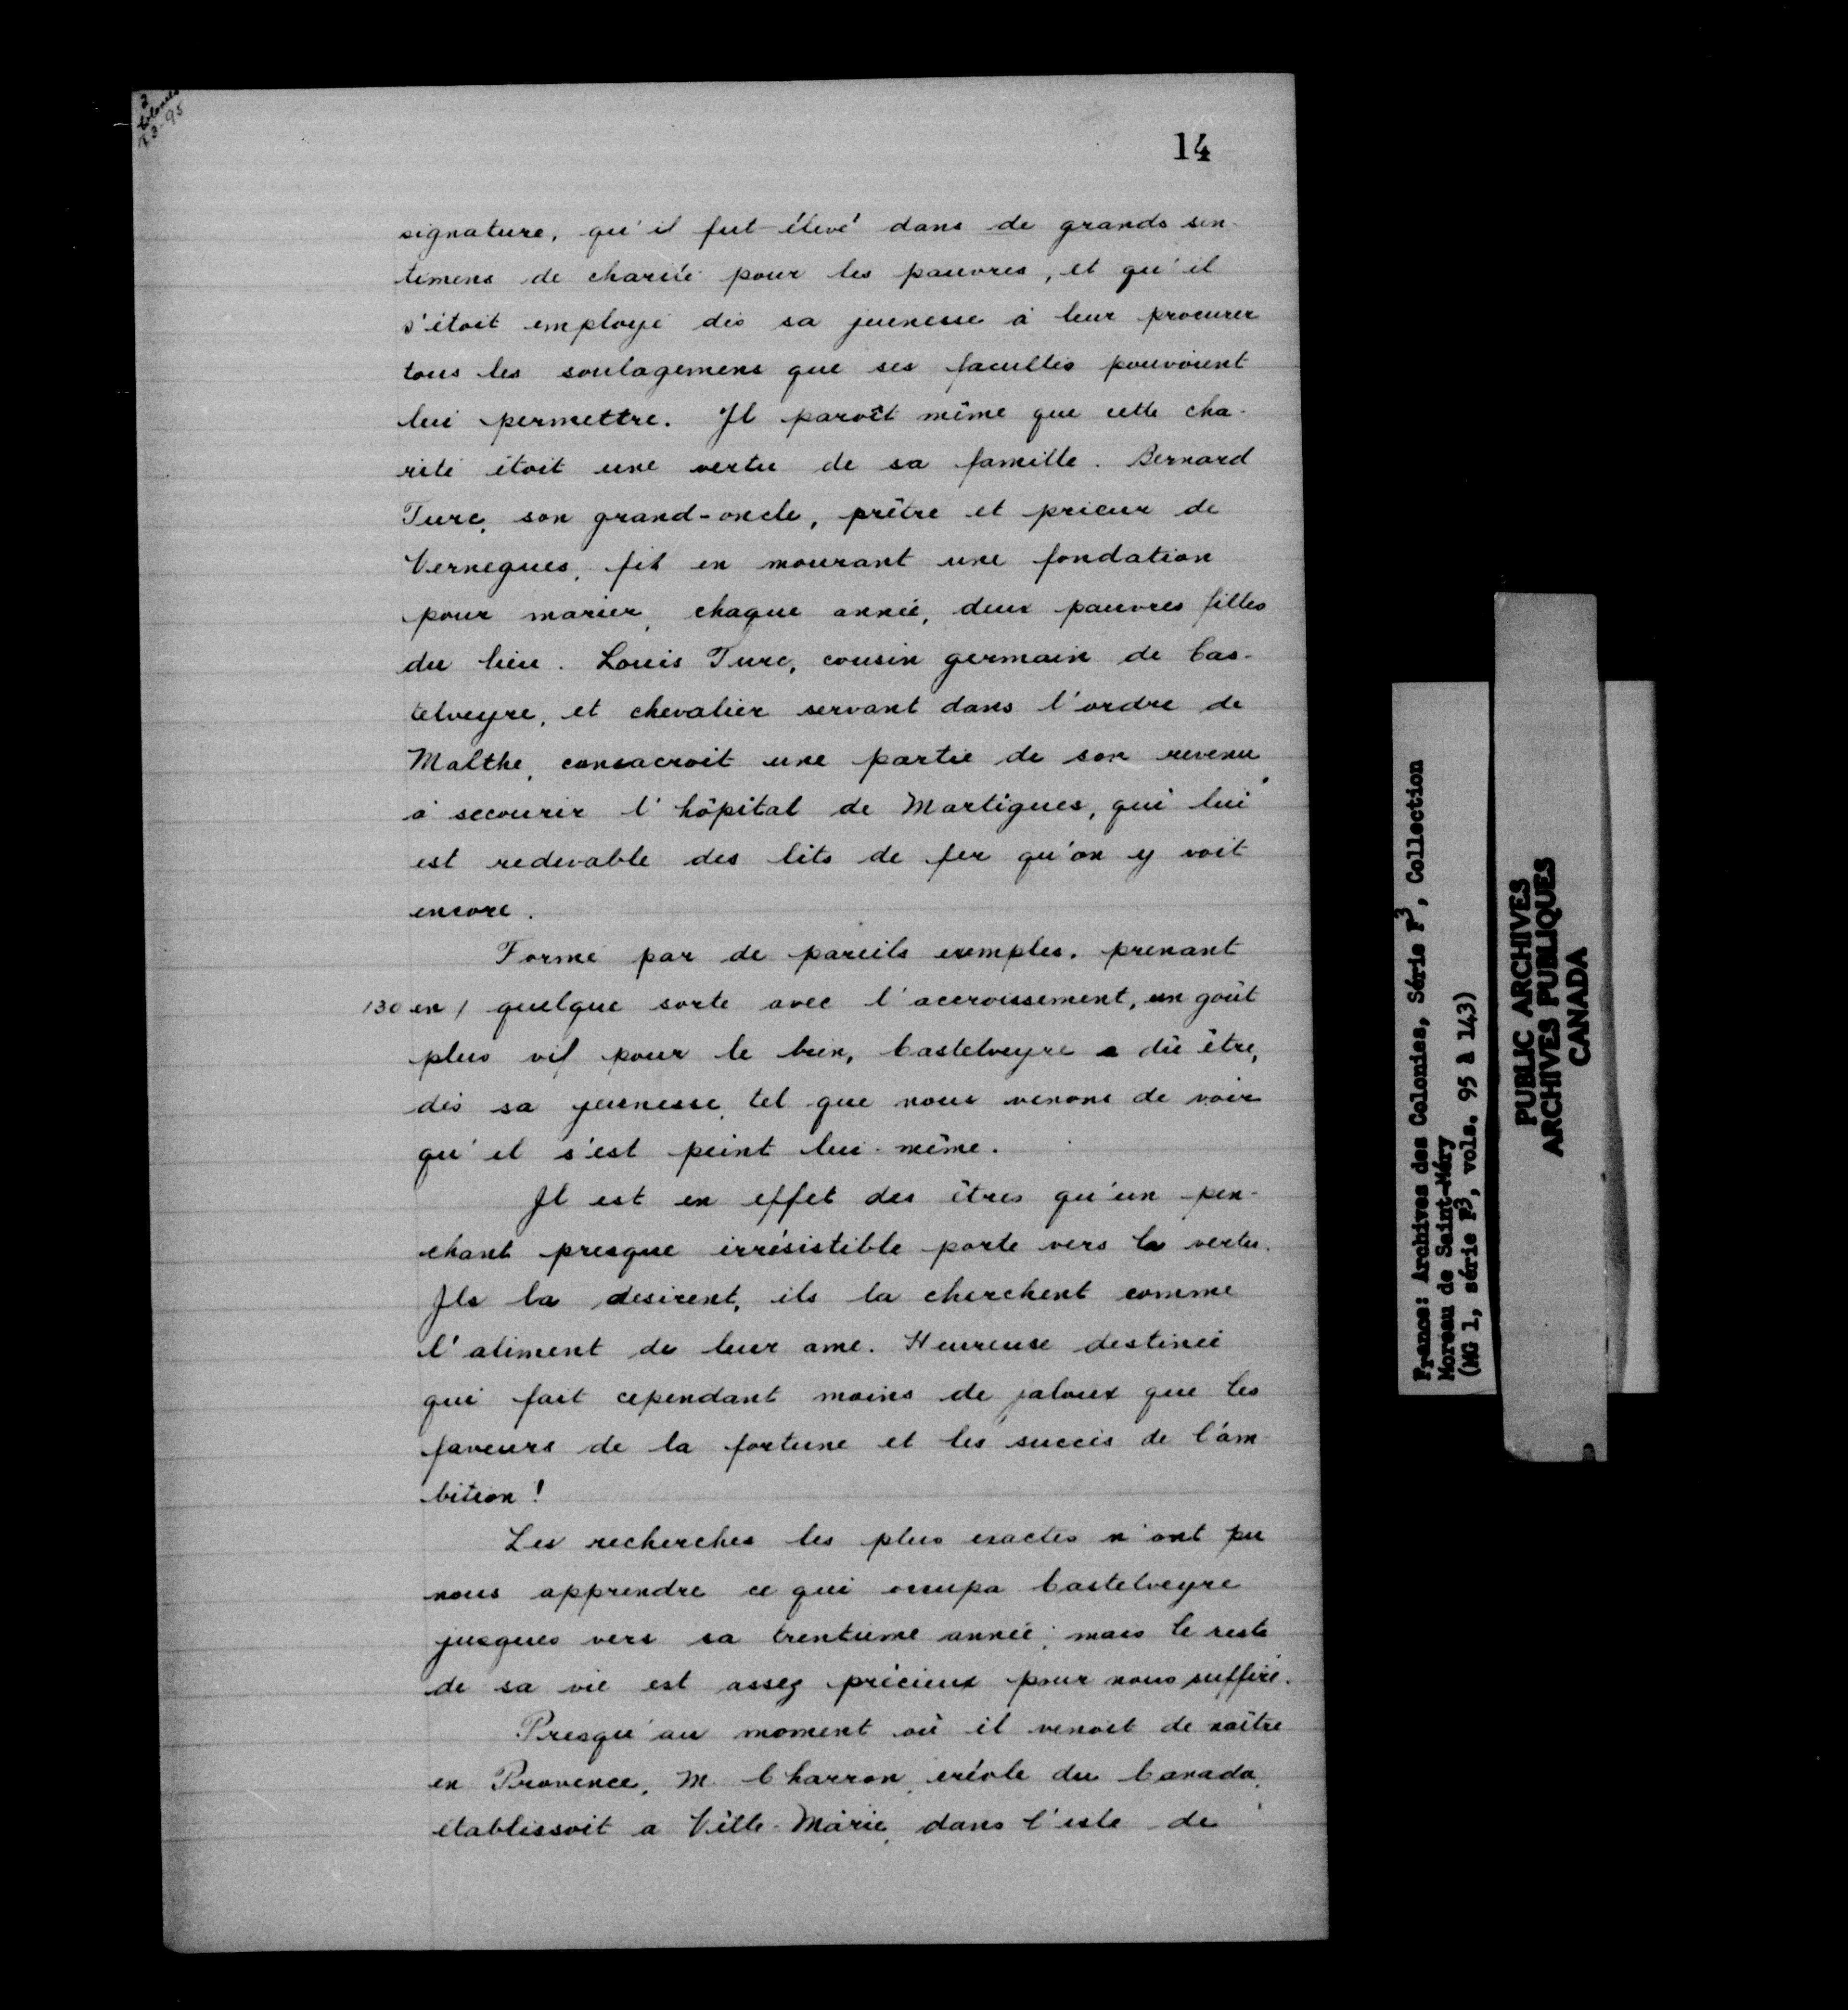 2
Colonies
F3-95
14
signature, qu'il fut élevé dans de grands sen-
timens de charité pour les pauvres, et qu'il
s'étoit employé dès sa jeunesse à leur procurer
tous les soulagemens que ses facultés pouvoient
lui permettre. Il paroît même que cette cha-
rité étoit une vertu de sa famille. Bernard
Turc, son grand-oncle, prêtre et prieur de
Vernegues, fit en mourant une fondation
pour marier, chaque année, deux pauvres filles
du lieu. Louis Turc, cousin germain de Cas-
telveyre, et chevalier servant dans l'ordre de
Malthe, consacroit une partie de son revenu
à secourir l'hôpital de Martigues, qui lui
est redevable des lits de fer qu'on y voit
encore.
Formé par de pareils exemples, prenant
130 en / quelque sorte avec l'accroissement, un goût
plus vif pour le bien, Castelveyre a dû être,
dès sa jeunesse, tel que nous venons de voir
qu'il s'est peint lui-même.
Il est en effet des êtres qu'un pen-
chant presque irrésistible porte vers la vertu.
Ils la desirent, ils la cherchent comme
l'aliment de leur ame. Heureuse destinée
qui fait cependant moins de jaloux que les
faveurs de la fortune et les succès de l'am
bition!
Les recherches les plus exactes n'ont pu
nous apprendre ce qui occupa Castelveyre
jusques vers sa trentieme année; mais le reste
de sa vie est assez précieux pour nous suffire.
Presqu'au moment où il venoit de naître
en Provence, M. Charron, créole du Canada,
établissoit a Ville-Marie, dans l'isle de
France: Archives des Colonies, Série F3, Collection
Moreau de Saint-Méry
(MG 1, série F3, vols. 95 à 143)
PUBLIC ARCHIVES
ARCHIVES PUBLIQUES
CANADA